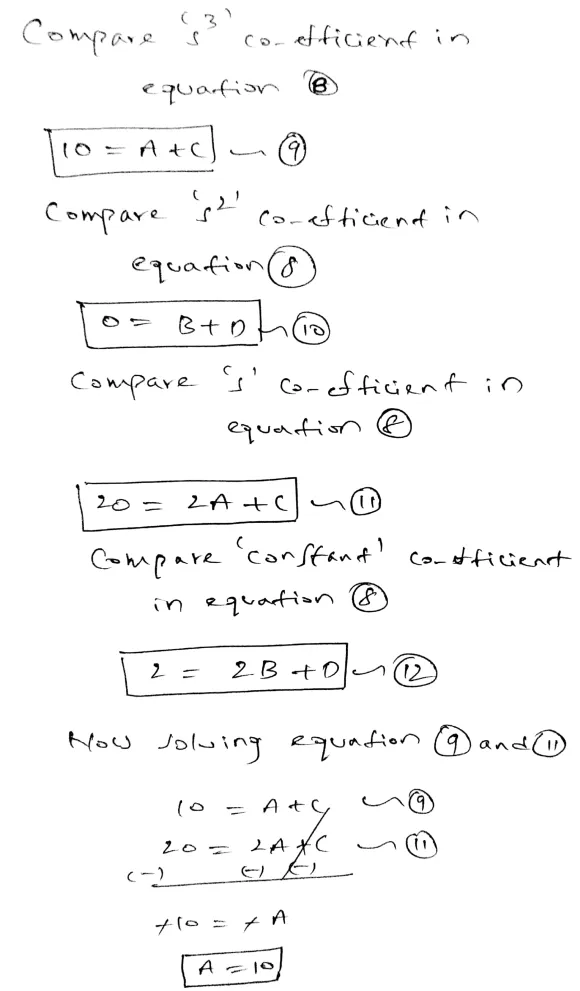 Compare 's³' co-efficient in
equation ⑧
10 = A + C ⑨
Compare 's²' co-efficient in
equation ⑧
0 = B + D ⑩
Compare 's' co-efficient in
equation ⑧
20 = 2A + C ⑪
Compare 'constant' co-efficient
in equation ⑧
2 = 2B + D ⑫
Now solving equation ⑨ and ⑪
10 = A + C ⑨
20 = 2A + C ⑪
(-) (-) (-)
+10 = + A
A = 10